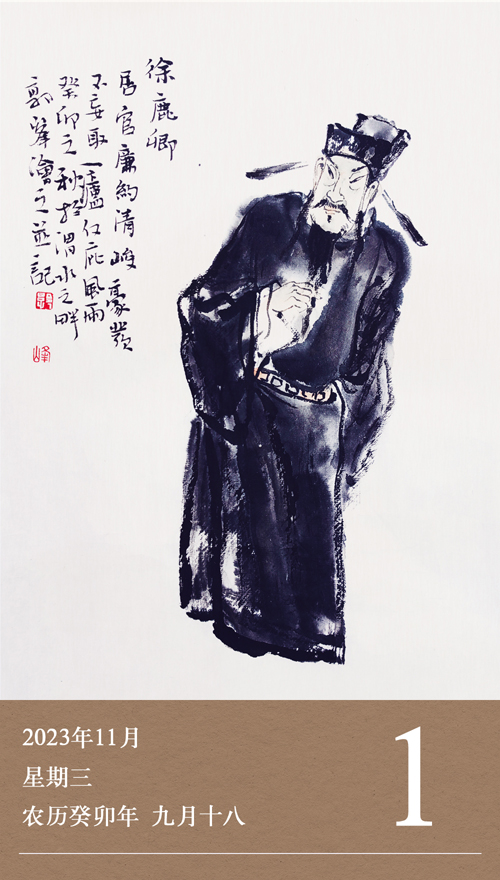 徐鹿卿
居官廉約清峻豪髮
不妄取一廬仅庇風雨
癸卯之秋於渭水之畔
郭峯繪之並記
峰
2023年11月
星期三
农历癸卯年 九月十八
1